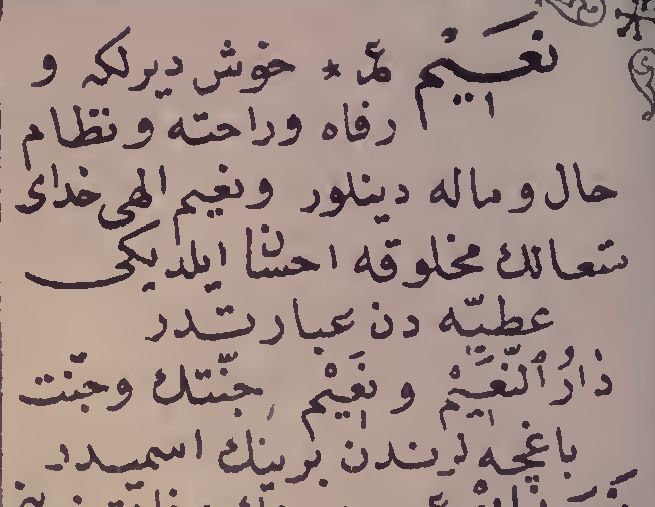 نَعِيْم عر * خوش ديرلكه و
رفاه وراحته ونظام
حال وماله دينلور ونعيم الهى خداى
متعالك مخلوقه احسان ايلديكى
عطيّه دن عبارتدر
دَارُ ٱلنَّعِيْم و نَعِيْم جنّتك وجنّت
باغچه لرندن برينك اسميدر